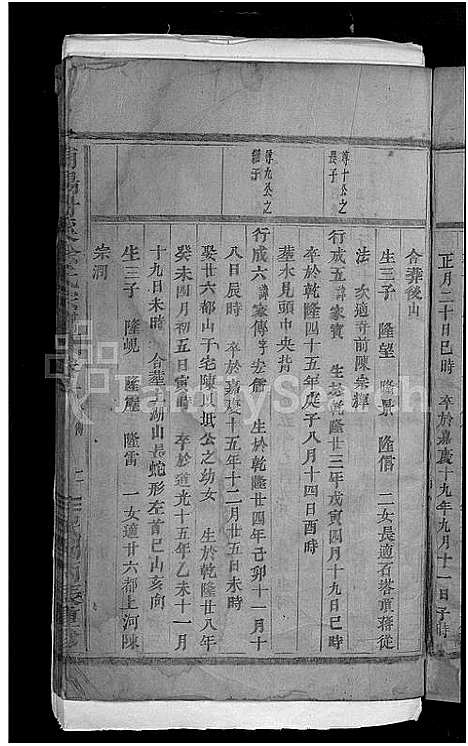 正月二十日巳時 卒於嘉慶十九年九月十一日子時
合葬後山
生三子 隆望 隆景 隆信 二女長適石塔頭蔣從
法 次適寺前陳宗輝
尊十公之
長子
行成五諱家賓 生於乾隆廿三年戊寅四月十九日巳時
卒於乾隆四十五年庚子八月十四日酉時
葬水見頭中央背
尊九公之
繼子
行成六諱家傳字宏信 生於乾隆廿四年己卯十一月十
八日辰時 卒於嘉慶十五年十二月廿五日未時
娶廿六都山子宅陳以坻公之幼女 生於乾隆廿八年
癸未四月初五日寅時 卒於道光十五年乙未十一月
十九日未時 合葬于湖山長蛇形左首巳山亥向
生三子 隆峴 隆 隆雷 一女適廿六都上河陳
宗潤
FamilySearch